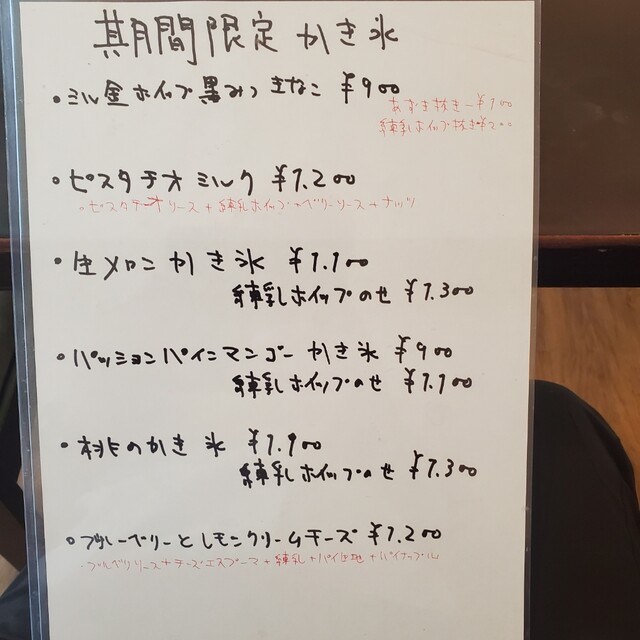 期間限定 かき氷
・ミルク金ホイップ黒みつきなこ ¥900
あずき抜き-¥100
練乳ホイップ抜き¥200
・ピスタチオミルク ¥1.200
・ピスタチオソース+練乳ホイップ+ベリーソース+ナッツ
・生メロンかき氷 ¥1.100
練乳ホイップのせ ¥1.300
・パッションパインマンゴーかき氷 ¥900
練乳ホイップのせ ¥1.100
・桃のかき氷 ¥1.100
練乳ホイップのせ ¥1.300
・ブルーベリーとレモンクリームチーズ ¥1.200
・ブルベリソース+チーズエスプーマ+練乳+パイ生地+パイナップル